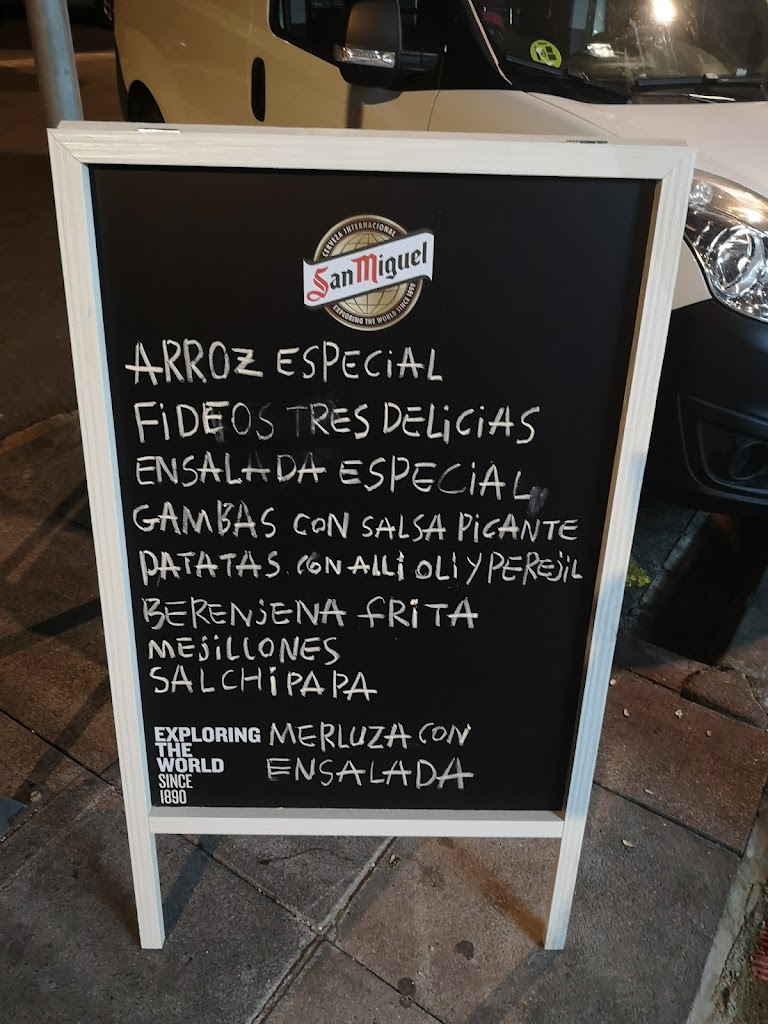 CERVEZA INTERNACIONAL
San Miguel
EXPLORING THE WORLD SINCE 1890
ARROZ ESPECIAL
FIDEOS TRES DELICIAS
ENSALADA ESPECIAL
GAMBAS CON SALSA PICANTE
PATATAS CON ALLI OLI Y PEREJIL
BERENJENA FRITA
MEJILLONES
SALCHIPAPA
EXPLORING
THE
WORLD
SINCE
1890
MERLUZA CON
ENSALADA